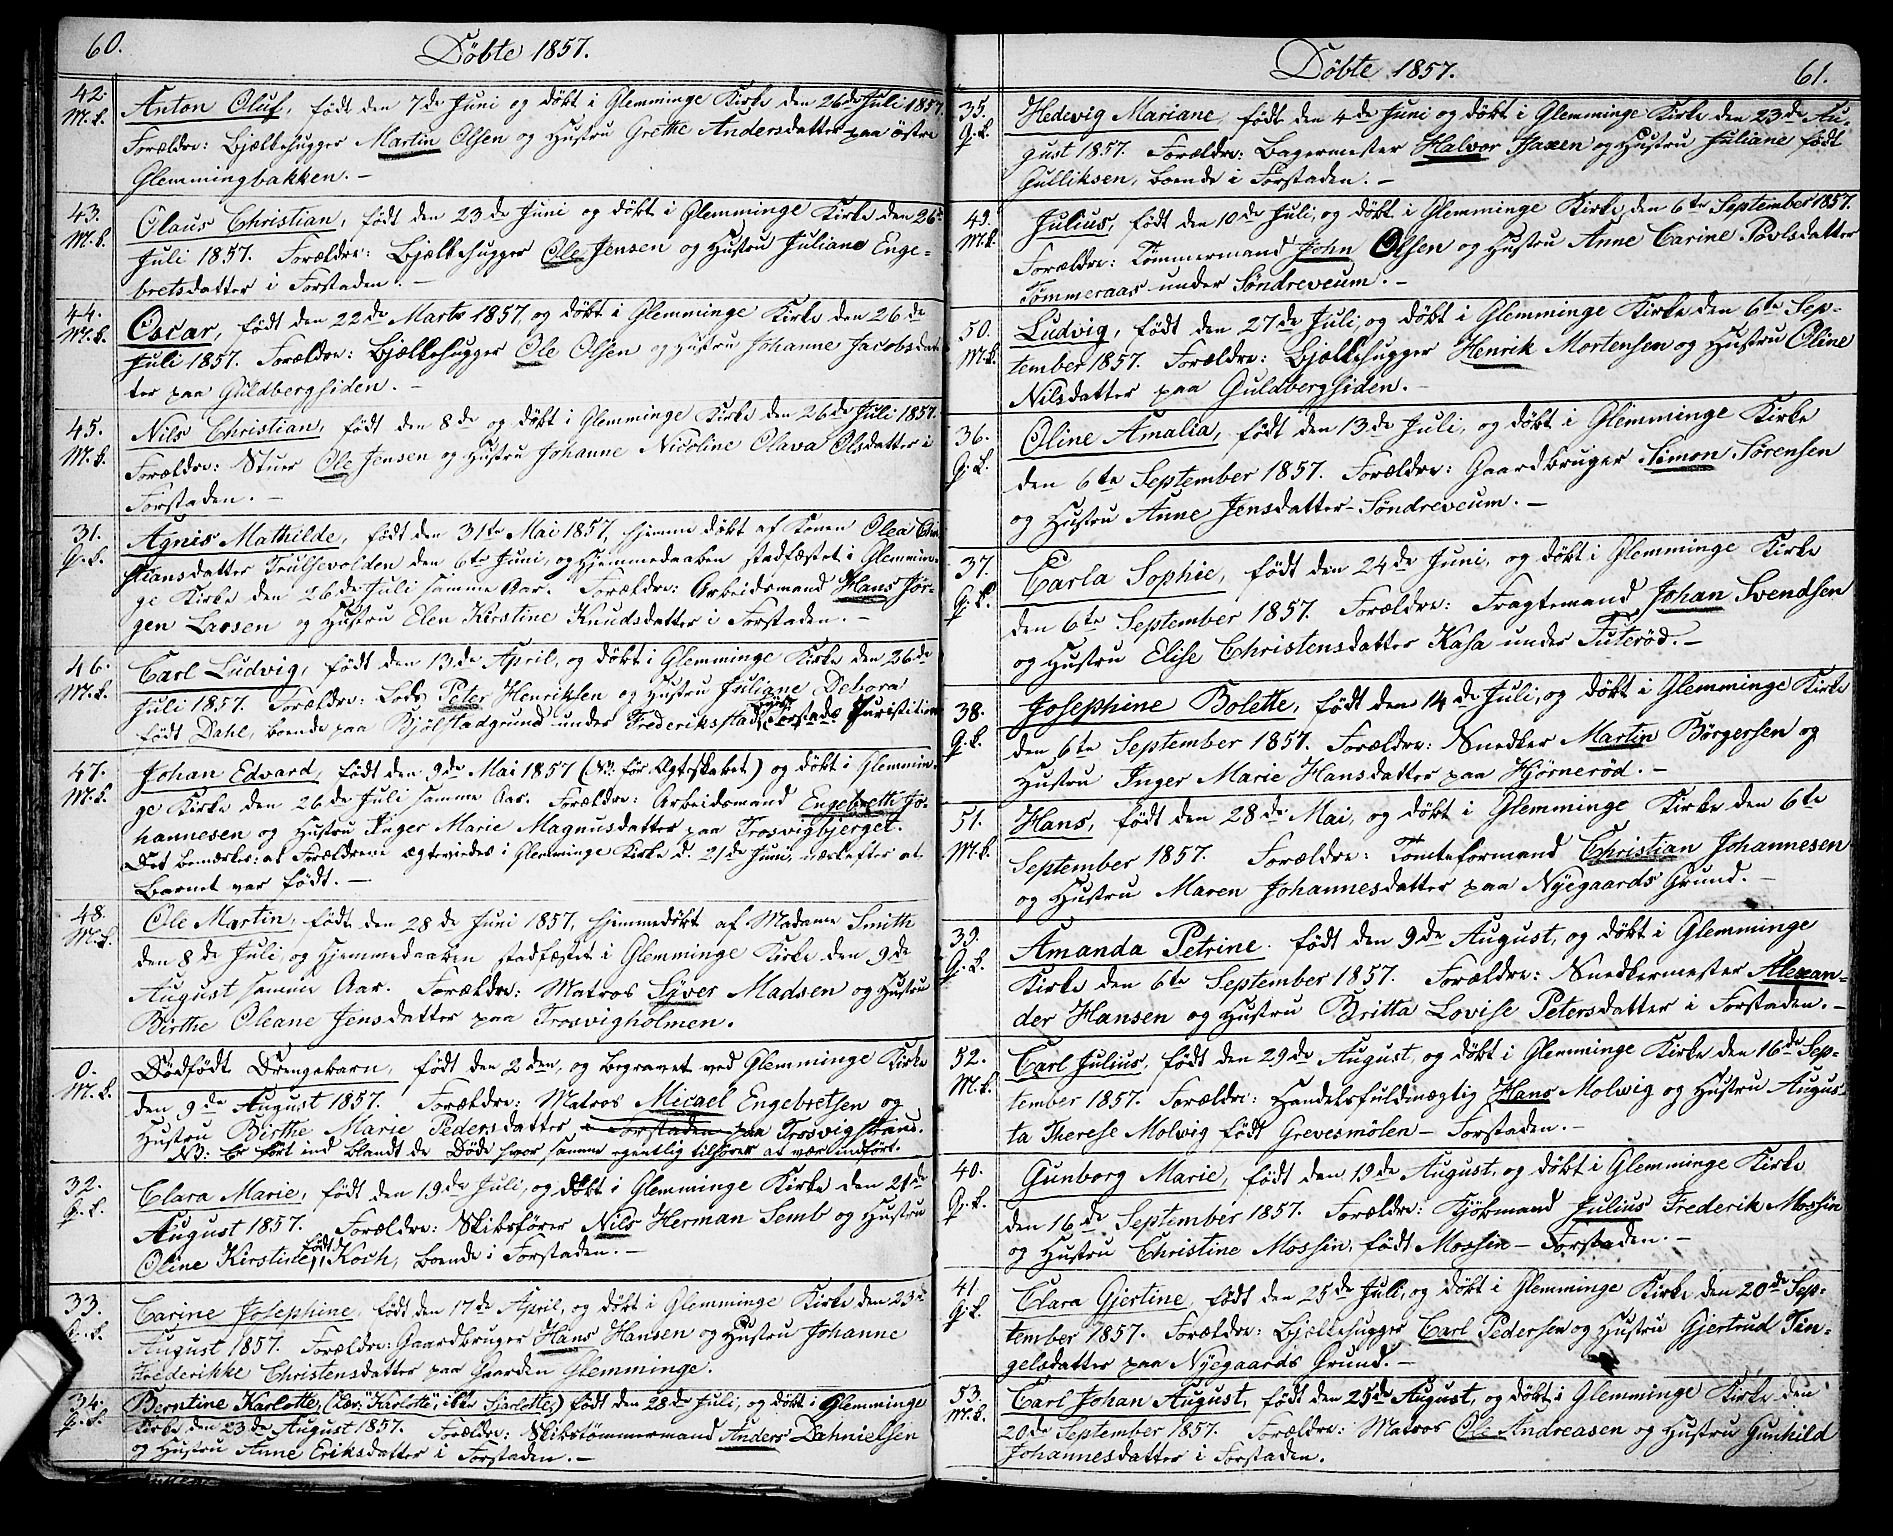 60.
Döbte 1857.
42.
M.k.
Anton Oluf, født den 7de Juni og døbt i Glemminge Kirke den 26de Juli 1857.
Forældre: Bjelkehugger Martin Olsen og Hustru Grethe Andersdatter paa östre
Glemmingbakken. –
43.
M.k.
Olaus Christian, født den 23de Juni og døbt i Glemminge Kirke den 26de
Juli 1857. Forældre: Bjelkehugger Ole Jensen og Hustru Juliane Enge-
bretsdatter i Forstaden. –
44.
M.k.
Oscar, født den 22de Marts 1857 og døbt i Glemminge Kirke den 26de
Juli 1857. Forældre: Bjelkehugger Ole Olsen og Hustru Johanne Jacobsdat-
ter paa Guldbergsiden. –
45.
M.k.
Nils Christian, født den 8de og døbt i Glemminge Kirke den 26de Juli 1857.
Forældre: Stuer Ole Jensen og Hustru Johanne Nicoline Olava Olsdatter i
Forstaden. –
31.
Q.k.
Agnis Mathilde, født den 31te Mai 1857, hjemme døbt af Konen Olea Chri
stiansdatter Trulsevolden den 6te Juni, og Hjemmedaaben stadfæstet i Glemmin-
ge Kirke den 26de Juli samme Aar. Forældre: Arbeidsmand Hans Jør-
gen Larsen og Hustru Elen Kirstine Knudsdatter i Forstaden. –
46.
M.k.
Carl Ludvig, født den 13de April, og døbt i Glemminge Kirke den 26de
Juli 1857. Forældre: Lods Peter Henriksen og Hustru Juliane Debora
født Dahl, boende paa Bjølstadgrund under Frederiksstads Forstads Juristiktion
47.
M.k.
Johan Edvard, født den 9de Mai 1857 (NB: før Ægteskabet) og døbt i Glemmin-
ge Kirke den 26de Juli samme Aar. Forældre: Arbeidsmand Engebrett Jo-
hannesen og Hustru Inger Marie Magnusdatter paa Trosvigbjerget.
Det bemærkes: at Forældrene ægteviedes i Glemminge Kirke d. 21de Juni, næstefter at
Barnet var født. –
48.
M.k.
Ole Martin, født den 28de Juni 1857, hjemmedøbt af Madame Smith
den 8de Juli, og Hjemmedaaben stadfæstet i Glemminge Kirke den 9de
August samme Aar. Forældre: Matros Syver Madsen og Hustru
Birthe Oleane Jensdatter paa Trosvigholmen.
0.
M.k.
Dødfødt Drengebarn, født den 2den, og begravet ved Glemminge Kirke
den 9de August 1857. Forældre: Matros Micael Engebretsen og
Hustru Birthe Marie Pedersdatter i Forstaden paa Trosvigstrand.
NB: Er ført ind blandt de Døde hvor samme egentlig tilhører at være indført.
32.
Q.k.
Clara Marie, født den 19de Juli, og døbt i Glemminge Kirke den 21de
August 1857. Forældre: Skibsfører Nils Herman Semb og Hustru
Oline Kirstine født Koch, boende i Forstaden. –
33.
Q.k.
Carine Josephine, født den 17de April, og døbt i Glemminge Kirke den 23de
August 1857. Forældre: Gaardbruger Hans Hansen og Hustru Johanne
Frederikke Christensdatter paa Gaarden Glemminge.
34.
Q.k.
Berntine Karlotte, (Læs: Karlotte, ikke Sjarlotte) født den 28de Juli, og døbt i Glemminge
Kirke den 23de August 1857. Forældre: Skibstømmermand Anders Dahnielsen
og Hustru Anne Eriksdatter i Forstaden. –
Döbte 1857.
61.
35.
Q.k.
Hedevig Mariane, født den 4de Juni og døbt i Glemminge Kirke den 23de Au-
gust 1857. Forældre: Bagermester Halvor Isaxen og Hustru Juliane født
Gulliksen, boende i Forstaden. –
49.
M.k.
Julius, født den 10de Juli, og døbt i Glemminge Kirke den 6te September 1857.
Forældre: Tømmermand John Olsen og Hustru Anne Carine Povlsdatter
Tømmeraas under Søndreveum. –
50.
M.k.
Ludvig, født den 27de Juli, og døbt i Glemminge Kirke den 6te Sep-
tember 1857. Forældre: Bjelkehugger Henrik Mortensen og Hustru Oline
Nilsdatter paa Guldbergsiden. –
36.
Q.k.
Oline Amalia, født den 13de Juli, og døbt i Glemminge Kirke
den 6te September 1857. Forældre: Gaardbruger Simon Sørensen
og Hustru Anne Jensdatter – Søndreveum. –
37.
Q.k.
Carla Sophie, født den 24de Juni, og døbt i Glemminge Kirke
den 6te September 1857. Forældre: Fragtemand Johan Svendsen
og Hustru Elise Christensdatter Kasa under Tuterød. –
38.
Q.k.
Josephine Bolette, født den 14de Juli, og døbt i Glemminge Kirke
den 6te September 1857. Forældre: Snedker Martin Börgersen og
Hustru Inger Marie Hansdatter paa Hjørnerød. –
51.
M.k.
Hans, født den 28de Mai, og døbt i Glemminge Kirke den 6te
September 1857. Forældre: Tomteformand Christian Johannesen
og Hustru Maren Johannesdatter paa Nyegaards Grund. –
39.
Q.k.
Amanda Petrine. født den 9de August, og døbt i Glemminge
Kirke den 6te September 1857. Forældre: Snedkermester Alexan-
der Hansen og Hustru Britta Lovise Petersdatter i Forstaden. –
52.
M.k.
Carl Julius, født den 29de August, og døbt i Glemminge Kirke den 16de Sep-
tember 1857. Forældre: Handelsfuldmægtig Hans Molwig og Hustru Augus-
ta Therese Molwig født Grevesmölen – Forstaden. –
40.
Q.k.
Gunborg Marie, født den 19de August, og døbt i Glemminge Kirke
den 16de September 1857. Forældre: Kjøbmand Julius Frederik Mossin
og Hustru Christine Mossin, født Mossin – Forstaden. –
41.
Q.k.
Clara Gjertine, født den 25de Juli, og døbt i Glemminge Kirke den 20de Sep-
tember 1857. Forældre: Bjelkehugger Carl Pedersen og Hustru Gjertrud Tin-
gelsdatter paa Nyegaards Grund. –
53.
M.k.
Carl Johan August, født den 25de August, og døbt i Glemminge Kirke den
20de September 1857. Forældre: Matros Ole Andreasen og Hustru Gunhild
Johannesdatter i Forstaden.